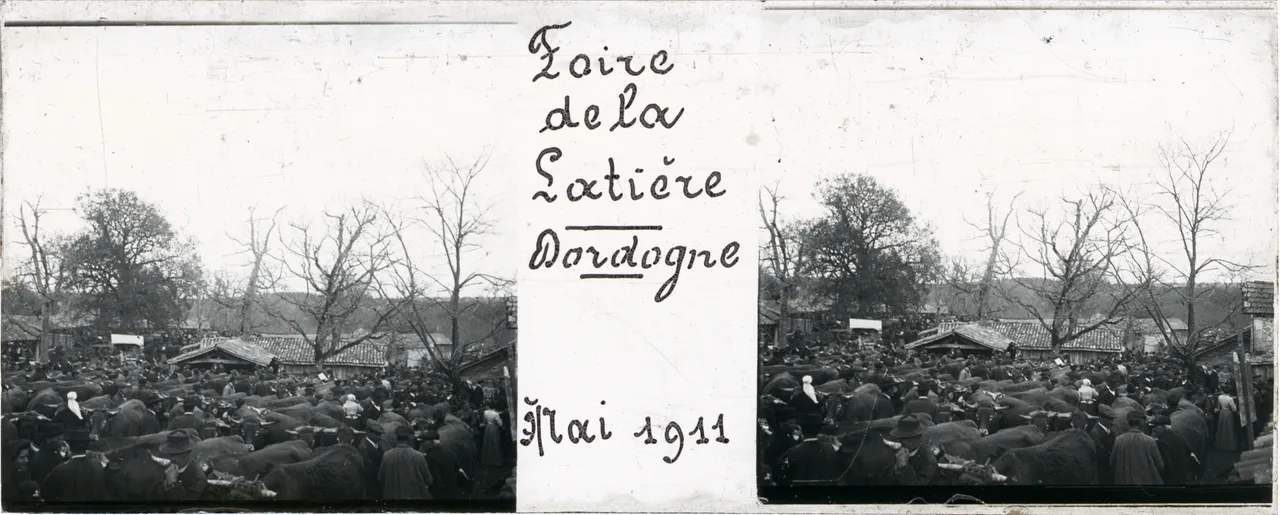 Foire
de la
Latière
Dordogne
Mai 1911